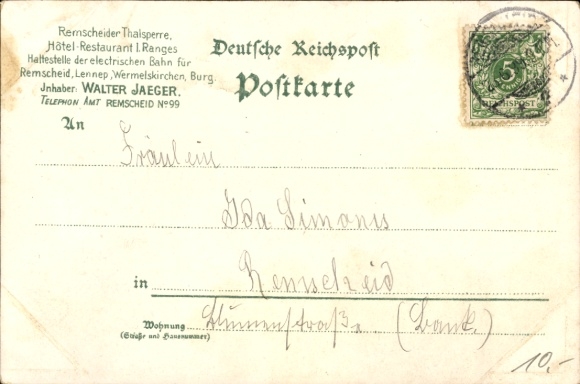 Remscheider Thalsperre,
Hôtel-Restaurant I. Ranges
Haltestelle der electrischen Bahn für
Remscheid, Lennep, Wermelskirchen, Burg.
Jnhaber: WALTER JAEGER.
TELEPHON AMT REMSCHEID No 99
Deutsche Reichspost
Postkarte
5
REICHSPOST
An
Fräulein
Ida Simonis
in Remscheid
Wohnung Blumenstraße (Bank.)
(Straße und Hausnummer)
10,-